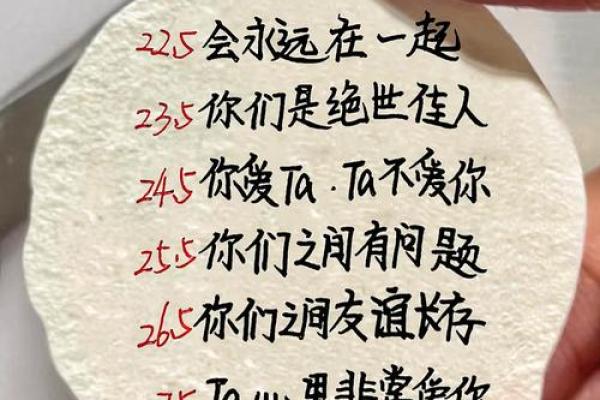 22.5 会永远在一起
23.5 你们是绝世佳人
24.5 你爱Ta.Ta不爱你
25.5 你们之间有问题
26.5 你们之间友谊长存
7.5 Ta心里非常爱你